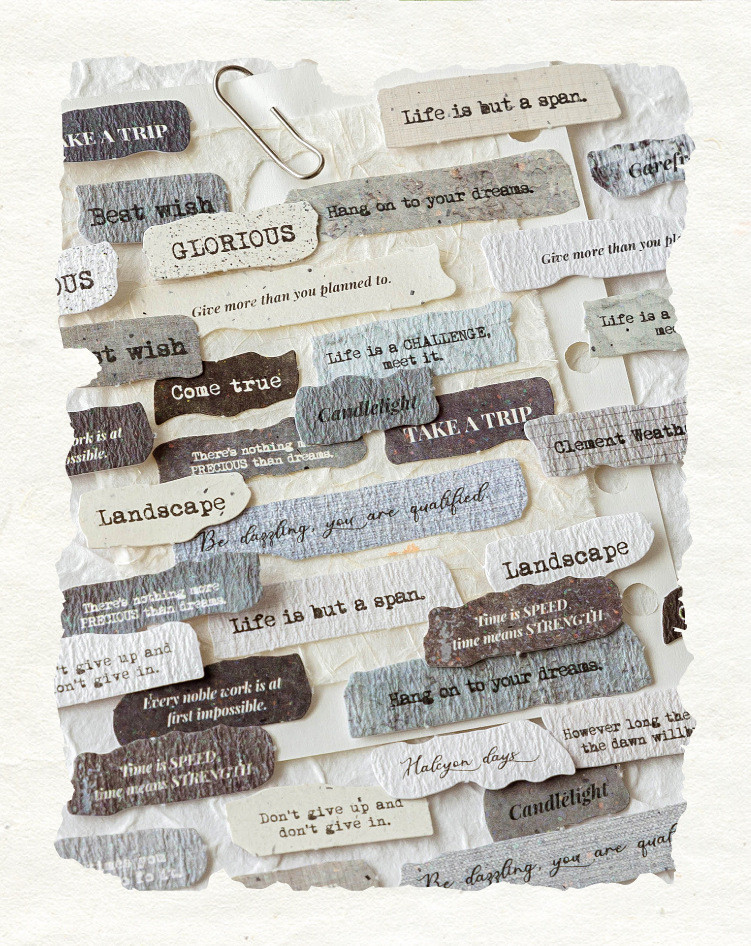 Life is but a span.
AKE A TRIP
Carefr
Best wish
Hang on to your dreams.
GLORIOUS
Give more than you pl
OUS
Give more than you planned to.
Life is a
mee
st wish
Life is a CHALLENGE,
meet it.
Come true
Candlelight
TAKE A TRIP
ork is at
ossible.
There's nothing m
PRECIOUS than dreams.
Clement Weath
Landscape
Be dazzling, you are qualified.
Landscape
There's nothing more
PRECIOUS than dreams
Life is but a span.
Time is SPEED
time means STRENGTH
't give up and
on't give in.
Every noble work is at
first impossible.
Hang on to your dreams.
However long the
the dawn will
Time is SPEED
time means STRENGTH
Halcyon days
Candlelight
Don't give up and
don't give in.
you
Be dazzling, you are qual